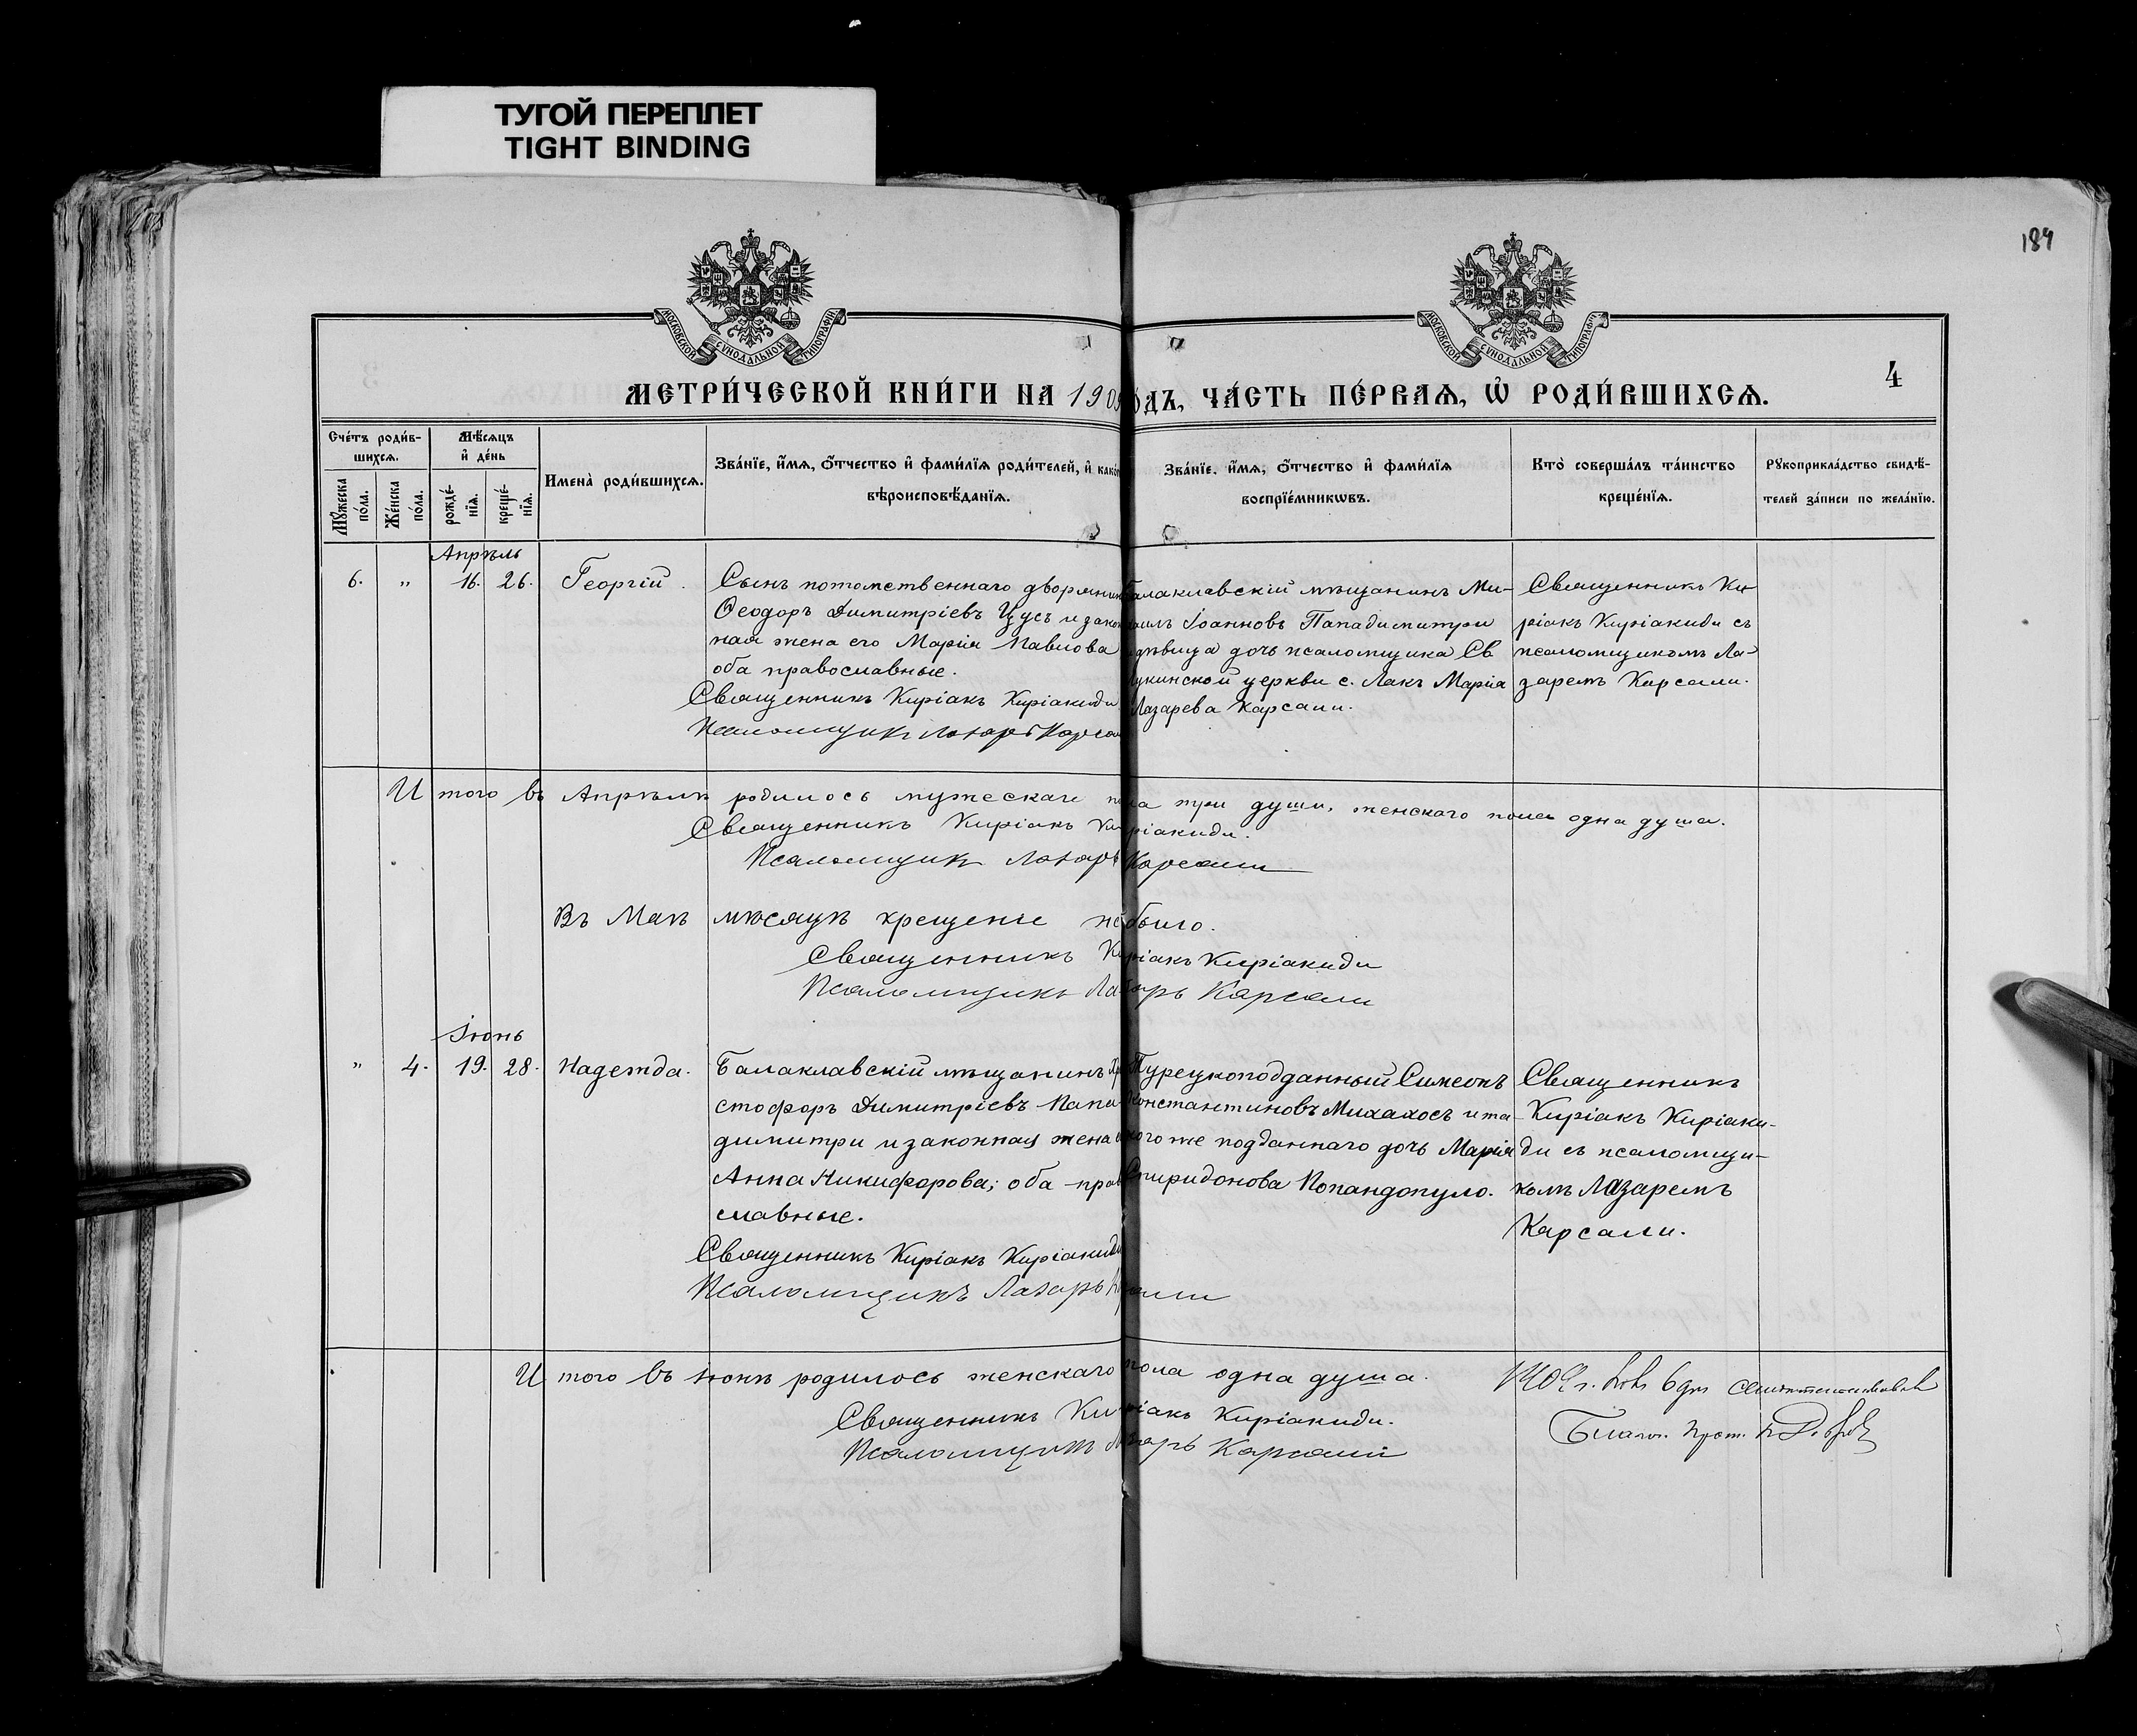 ТУГОЙ ПЕРЕПЛЕТ
TIGHT BINDING
184
МОСКОВСКОЙ СѴНОДАЛЬНОЙ ТИПОГРАФІИ
МОСКОВСКОЙ СѴНОДАЛЬНОЙ ТИПОГРАФІИ
4
МЕТРИ́ЧЕСКОЙ КНИ́ГИ НА 190 ОДЪ, ЧА́СТЬ ПЕ́РВАѦ, Ѡ҆ РОДИ́ВШИХСѦ.
Сче́тъ роди́в-
шихсѧ.
Мꙋ́жеска по́ла.
Же́нска по́ла.
Мѣ́сѧцъ
и҆ де́нь
рожде́-нїѧ.
креще́-нїѧ.
Имена̀ роди́вшихсѧ.
Зва́нїе, и҆́мѧ, ѻ҆́тчество и҆ фами́лїѧ роди́телей, и҆ како́
вѣроисповѣ́данїѧ.
Зва́нїе, и҆́мѧ, ѻ҆́тчество и҆ фами́лїѧ
воспрїе́мникѡвъ.
Кто̀ соверша́лъ та́инство
креще́нїѧ.
Рꙋкоприкла́дство свидѣ́-
телей за́писи по жела́нїю.
Апрѣль
6. „ 16. 26. Георгій.
Сынъ потомственнаго дворянин
Ѳеодоръ Димитріевъ Цусъ и закон
ная жена его Марія Павлова
оба православные.
Священникъ Киріакъ Киріакиди
Псаломщикъ Лазарь Карса
Балаклавскій мѣщанинъ Ми-
хаилъ Іоанновъ Пападимитри
и дѣвица дочь псаломщика Св.
Лукинской церкви с. Лакъ Марія
Лазарева Карсали.
Священникъ Ки
ріакъ Киріакиди съ
псаломщикомъ Ла-
заремъ Карсали.
И того въ Апрѣлѣ родилось мужескаго пола три души, женскаго пола одна душа.
Священникъ Киріакъ Киріакиди.
Псаломщикъ Лазарь Карсали
Въ Маѣ мѣсяцѣ крещеніе не было.
Священникъ Киріакъ Киріакиди
Псаломщикъ Лазарь Карсали
Іюнь
„ 4. 19. 28. Надежда.
Балаклавскій мѣщанинъ Хри
стофоръ Димитріевъ Папа
димитри и законная жена его
Анна Никифорова; оба право
славные.
Священникъ Киріакъ Киріакиди
Псаломщикъ Лазарь Карсали
Турецкоподданный Симеонъ
Константиновъ Михахосъ и та-
кого же подданнаго дочь Марія
Спиридонова Попандопуло.
Священникъ
Киріакъ Киріаки-
ди съ псаломщи-
комъ Лазаремъ
Карсали.
И того въ Іюнѣ родилось женскаго пола одна душа.
Священникъ Киріакъ Киріакиди.
Псаломщикъ Лазарь Карсали
6 дня
Благоч. Прот.